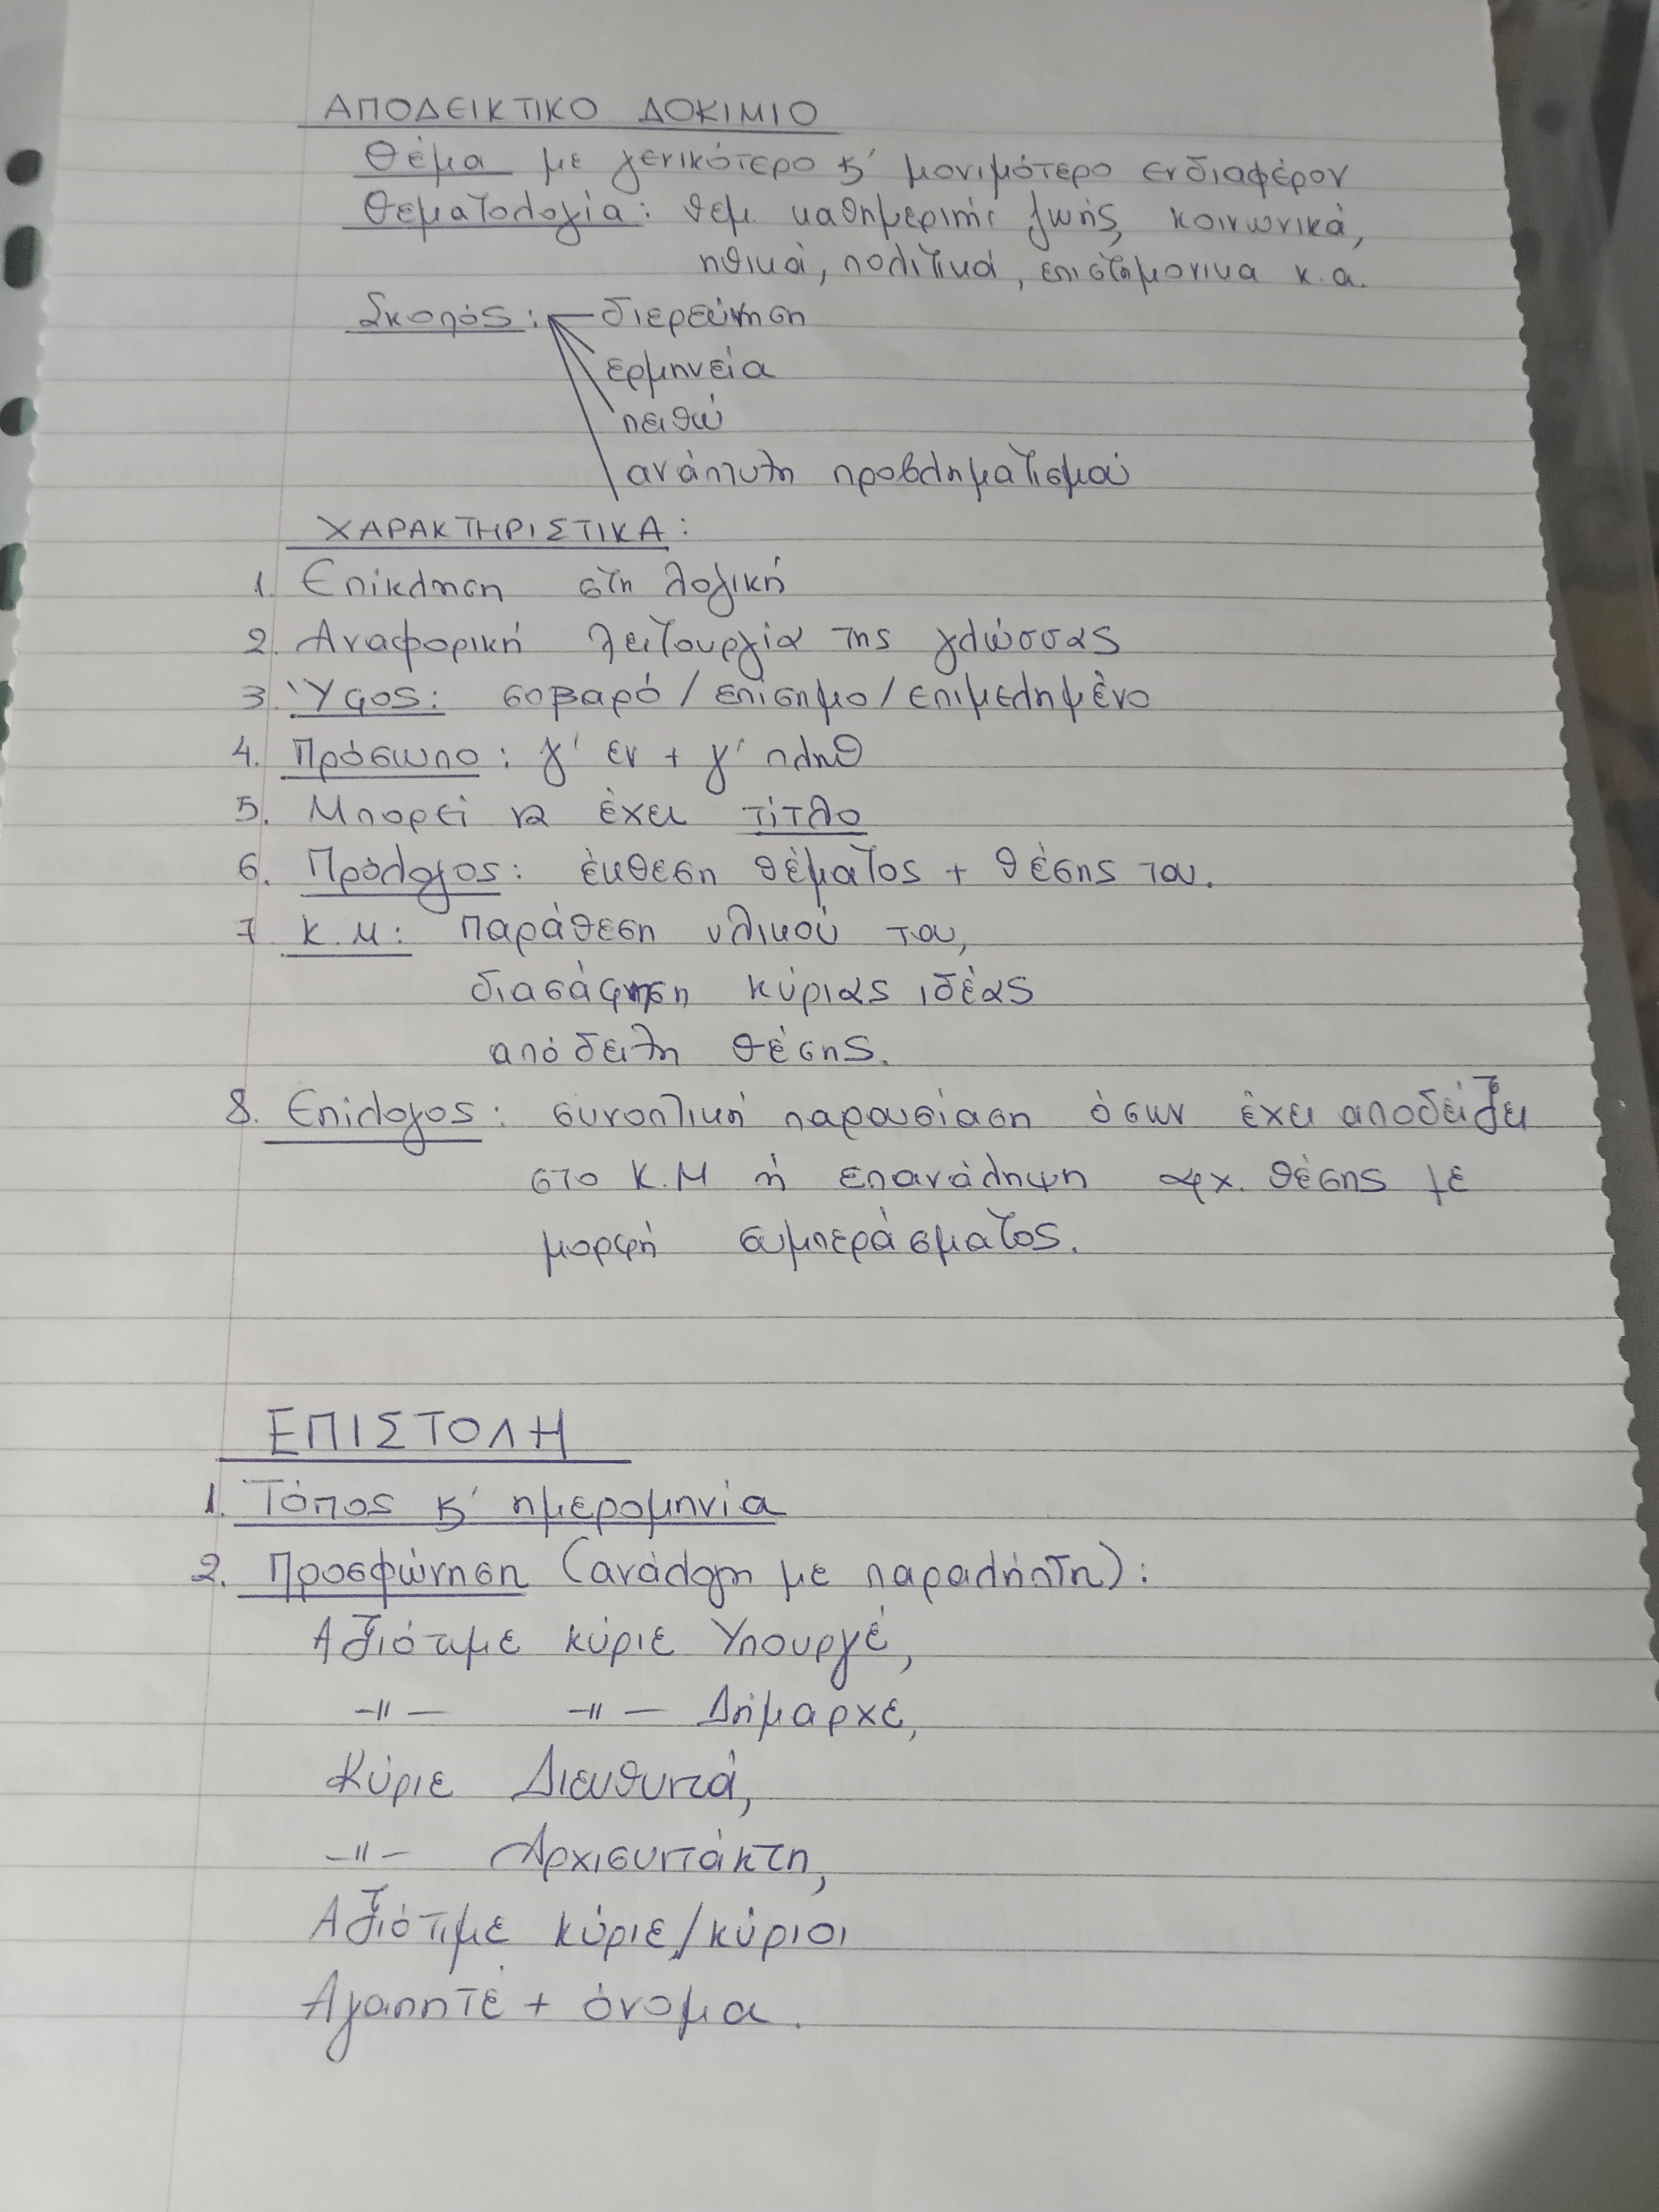 ΑΠΟΔΕΙΚΤΙΚΟ ΔΟΚΙΜΙΟ
Θέμα με γενικότερο κ' μονιμότερο ενδιαφέρον
Θεματολογία: θεμ. καθημερινής ζωής, κοινωνικά,
ηθικά, πολιτικά, επιστημονικα κ.α.
Σκοπός: διερεύνηση
ερμηνεία
πειθώ
ανάπτυξη προβληματισμού
ΧΑΡΑΚΤΗΡΙΣΤΙΚΑ:
1. Επίκληση στη λογική
2. Αναφορική λειτουργία της γλώσσας
3. Ύφος: σοβαρό/επίσημο/επιμελημένο
4. Πρόσωπο: γ' εν + γ' πληθ
5. Μπορεί να έχει τίτλο
6. Πρόλογος: έκθεση θέματος + θέσης του.
7 Κ.Μ: παράθεση υλικού του,
διασάφηση κύριας ιδέας
απόδειξη θέσης.
8. Επίλογος: συνοπτική παρουσίαση όσων έχει αποδείξει
στο Κ.Μ ή επανάληψη αρχ. θέσης με
μορφή συμπεράσματος.
ΕΠΙΣΤΟΛΗ
1. Τόπος κ' ημερομηνία
2. Προσφώνηση (ανάλογη με παραλήπτη):
Αξιότιμε κύριε Υπουργέ,
-〃- -〃- Δήμαρχε,
Κύριε Διευθυντά,
-〃- Αρχισυντάκτη,
Αξιότιμε κύριε/κύριοι
Αγαπητέ + όνομα.